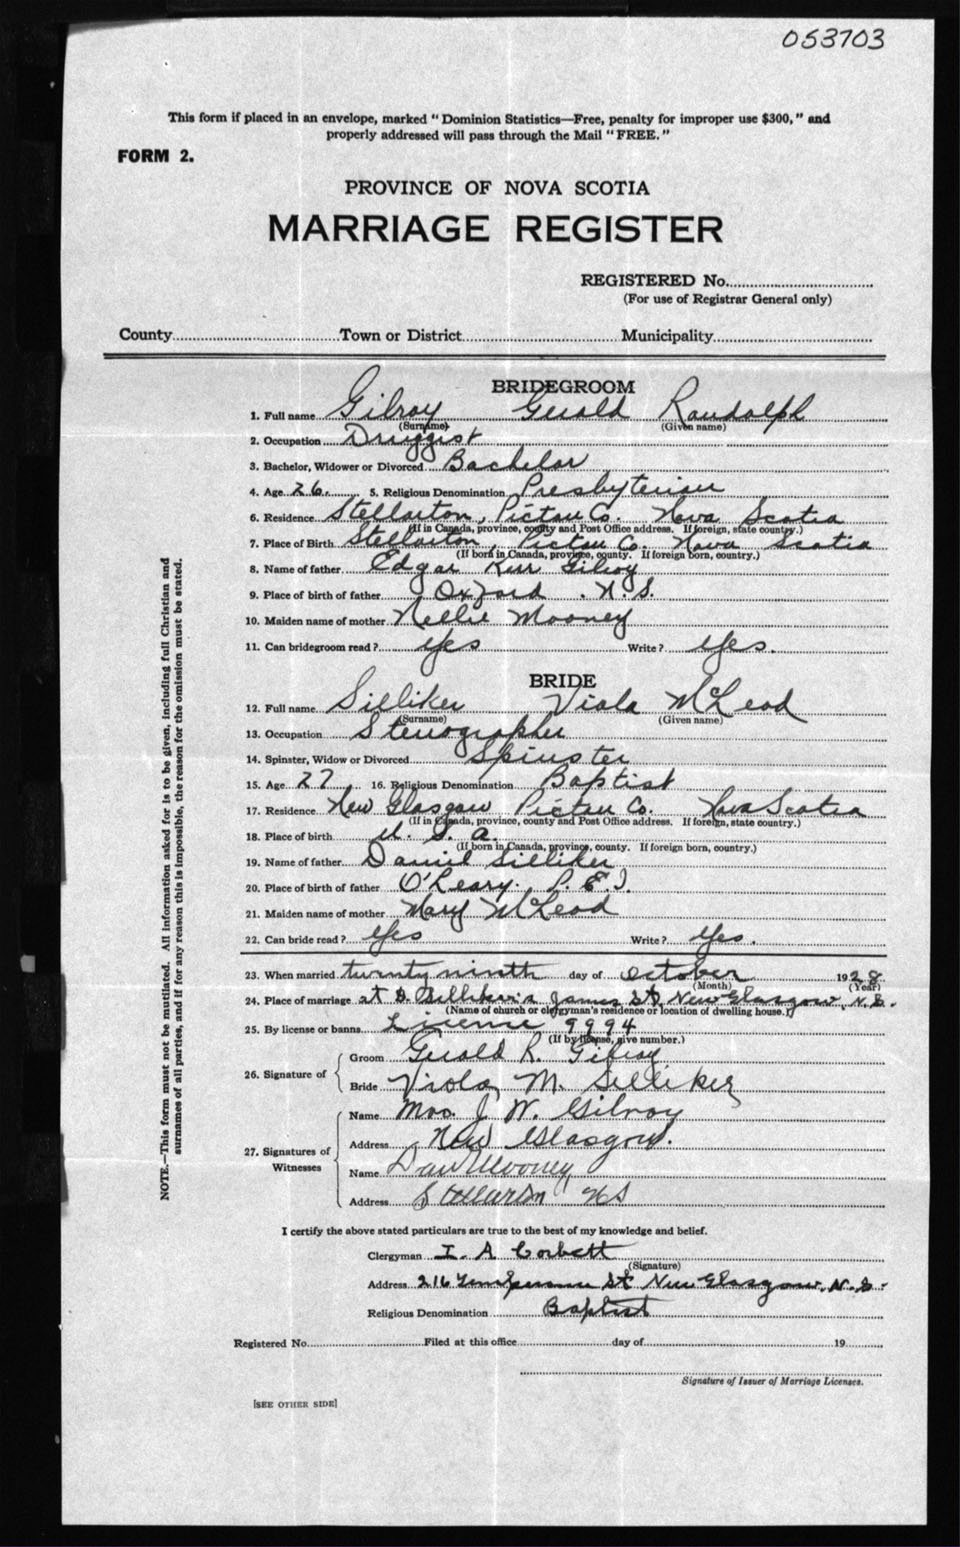 053703
This form if placed in an envelope, marked "Dominion Statistics—Free, penalty for improper use $300," and
properly addressed will pass through the Mail "FREE."
FORM 2.
PROVINCE OF NOVA SCOTIA
MARRIAGE REGISTER
REGISTERED No.
(For use of Registrar General only)
County Town or District Municipality
BRIDEGROOM
1. Full name Gilroy Gerald Randolph
(Surname) (Given name)
2. Occupation Druggist
3. Bachelor, Widower or Divorced Bachelor
4. Age 26. 5. Religious Denomination Presbyterian
6. Residence Stellarton, Pictou Co. Nova Scotia
(If in Canada, province, county and Post Office address. If foreign, state country.)
7. Place of Birth Stellarton, Pictou Co. Nova Scotia
(If born in Canada, province, county. If foreign born, country.)
8. Name of father Edgar Kerr Gilroy
9. Place of birth of father Oxford. N.S.
10. Maiden name of mother Nellie Mooney
11. Can bridegroom read? Yes Write? Yes.
BRIDE
12. Full name Silliker Viola McLeod
(Surname) (Given name)
13. Occupation Stenographer
14. Spinster, Widow or Divorced Spinster
15. Age 27 16. Religious Denomination Baptist
17. Residence New Glasgow Pictou Co. Nova Scotia
(If in Canada, province, county and Post Office address. If foreign, state country.)
18. Place of birth U. S. A.
(If born in Canada, province, county. If foreign born, country.)
19. Name of father Daniel Silliker
20. Place of birth of father O'Leary. P.E.I.
21. Maiden name of mother Mary McLeod
22. Can bride read? Yes Write? Yes.
23. When married twenty ninth day of October 1928
(Month) (Year)
24. Place of marriage at D. Silliker's James St, New Glasgow, N.S.
(Name of church or clergyman's residence or location of dwelling house.)
25. By license or banns License 9994
(If by license, give number.)
26. Signature of Groom Gerald R. Gilroy
Bride Viola M. Silliker
27. Signatures of Witnesses Name Mrs. J. W. Gilroy
Address New Glasgow.
Name Dan Mooney
Address Stellarton NS
I certify the above stated particulars are true to the best of my knowledge and belief.
Clergyman I. A Corbett
(Signature)
Address 216 St New Glasgow, N.S.
Religious Denomination Baptist
Registered No. Filed at this office day of 19
Signature of Issuer of Marriage Licenses.
[SEE OTHER SIDE]
NOTE.—This form must not be mutilated. All information asked for is to be given, including full Christian and
surnames of all parties, and if for any reason this is impossible, the reason for the omission must be stated.